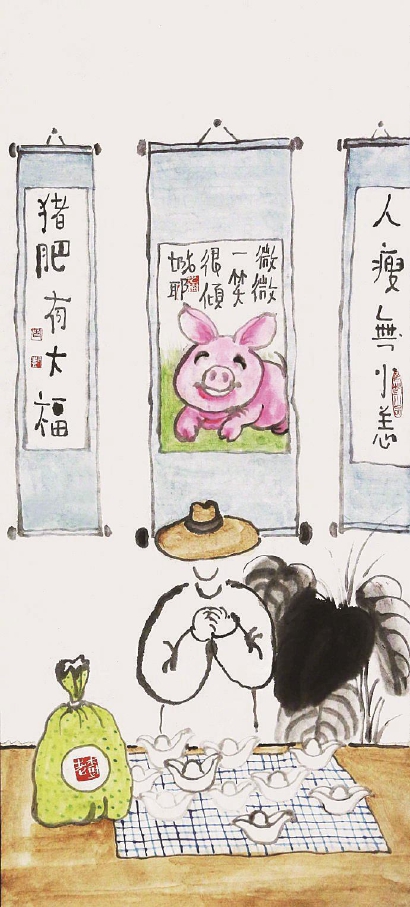 人瘦無小恙
微微
一笑
很傾
城耶
猪肥有大福